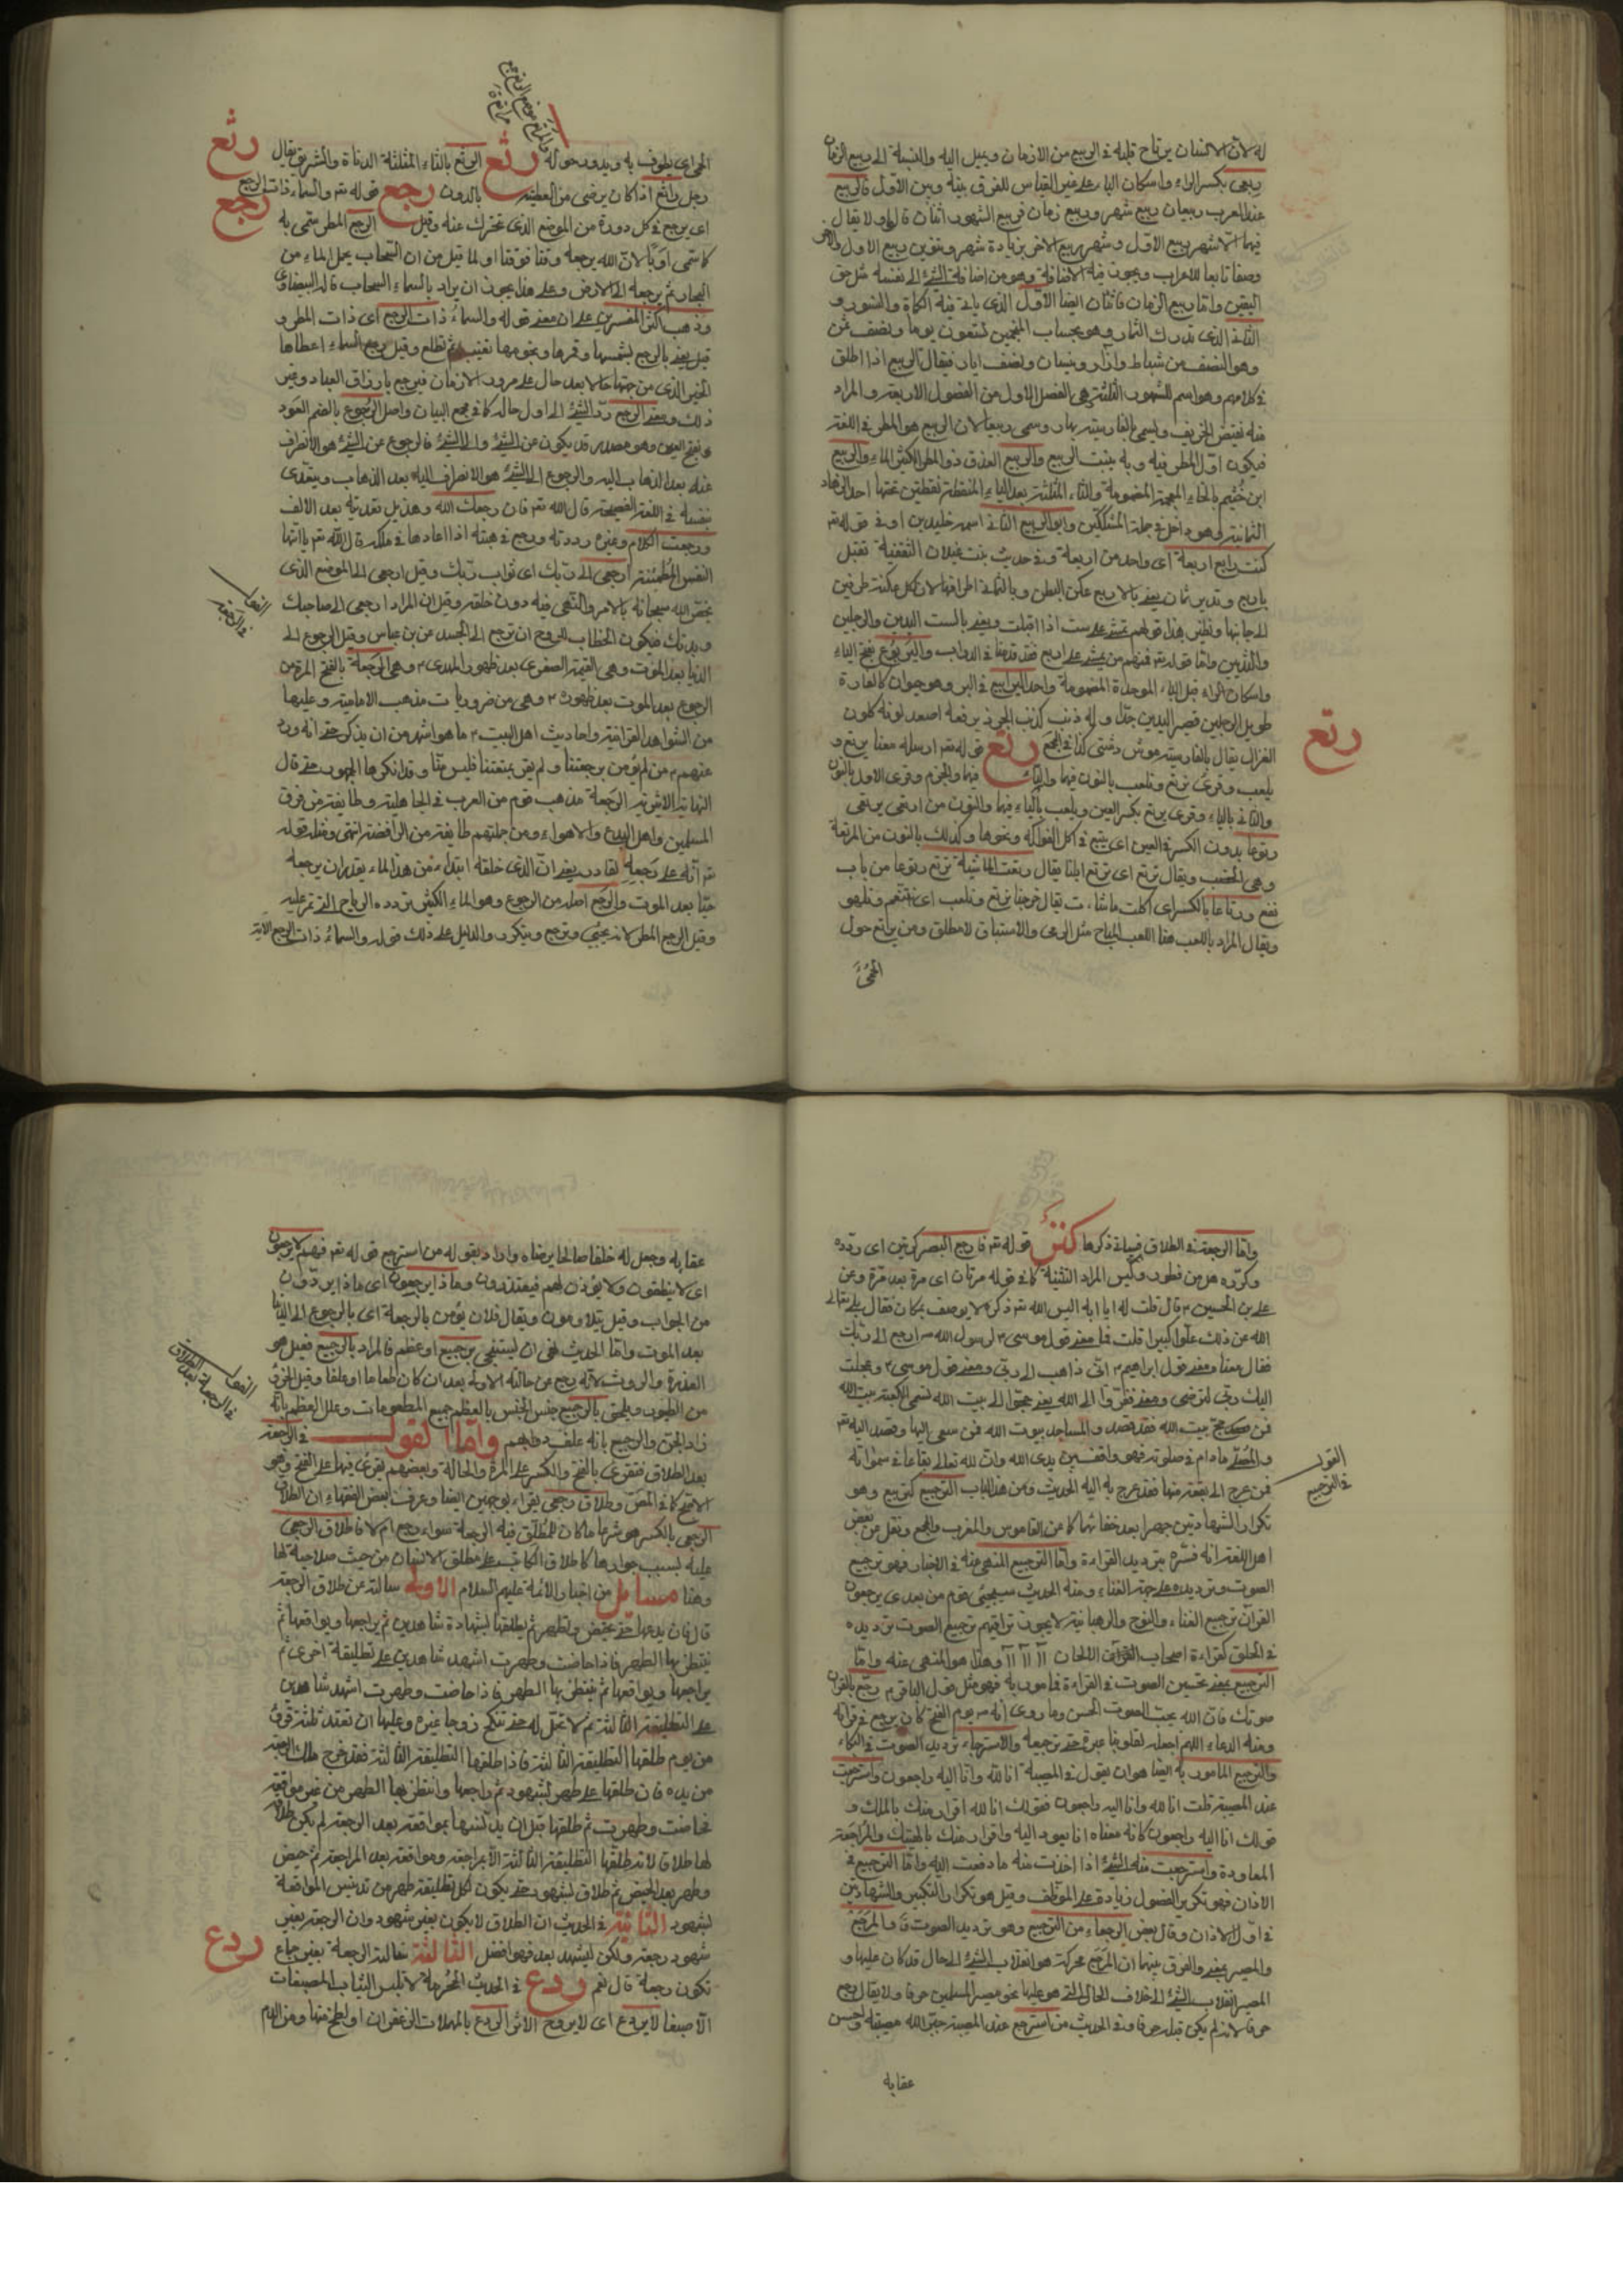 له لان الانسان يرتاح قلبه في الربيع من الازمان ويميل اليه والنسبة الى ربيع الزمان
ربعى بكسر الراء واسكان الباء على غير القياس للفرق بينه وبين الاول قالربيع
عند العرب ربيعان ربيع شهور وربيع زمان فربيع الشهور اثنان قالوا ولا يقال
فيهما الا شهر ربيع الاول وشهر ربيع الاخر بزيادة شهر وتنوين ربيع الاول والاخر
وصفا تابعا للاعراب ويجوز فيه الاضافة وهو من اضافة الشئ الى نفسه مثل حق
اليقين واما ربيع الزمان فاثنان ايضا الاول الذى ياتى فيه الكماة والنور و
الثانى الذى تدرك الثمار وهو بحساب المنجمين تسعون يوما ونصف ثمن
وهو النصف من شباط واذار ونيسان ونصف ايار فيقال الربيع اذا اطلق
في كلامهم وهو اسم للشهور الثلثة هي الفصل الاول من الفصول الاربعة والمراد
منه نقيض الخريف ويسمى بالفارسية بهار وسمى ربيعا لان الربيع هو المطر في اللغة
فيكون اول المطر فيه وبه ينبت الربيع والربيع العذق ذو المطر الكثير الماء والربيع
ابن خثيم بالخاء المعجمة المضمومة والثاء المثلثة بعد الياء المنقطة نقطتين تحتها احد الزهاد
الثمانية وهو داخل في جملة المشككين وابو الربيع الثانى اسمه خليد بن اوفى قوله تع
كنت رابع اربعة اى واحد من اربعة وفي حديث بنت غيلان الثقفية تقبل
باربع وتدبر بثمان يعنى بالاربع عكن البطن وبالثمانى اطرافها لان لكل عكنة طرفين
الى جانبها ونظير هذا قولهم تمشى على ست اذا اقبلت ويعنى بالست اليدين والرجلين
والثديين واما قوله تع فمنهم من يمشى على اربع فقد قدمنا في الدواب واليربوع بفتح الياء
واسكان الراء قبل الباء الموحدة المضمومة واحد اليرابيع في البر وهو حيوان كالفارة
طويل الرجلين قصير اليدين جدا وله ذنب كذنب الجرذ يرفعه صعد لونه كلون
الغزال يقال بالفارسية موش دشتى كذا في المجمع رتع قوله تع ارسله معنا يرتع و
رتع
يلعب وقرئ نرتع ونلعب بالنون فيهما والياء فيهما والجزم وقرئ الاول بالنون
والثانى بالياء وقرئ يرتع بكسر العين ويلعب بالياء فيهما والنون من ارتعى يرتعى
رتوعا بدون الكسر في العين اى يتسع في اكل الفواكه ونحوها وكذلك بالنون من المرتعة
وهى الخصب ويقال نرتع اى نرتع ابلنا يقال رتعت الماشية ترتع رتوعا من باب
نفع ورتاعا بالكسر اى اكلت ما شاءت يقال خرجنا نرتع ونلعب اى نتنعم ونلهو
ويقال المراد باللعب هنا اللعب المباح مثل الرمى والاستباق لا مطلق ومن يرتع حول
الحمى
الحمى اى يطوف به ويدور حوله رثع الرثع بالثاء المثلثة الدناة والشره يقال
رثع
رجل راثع اذا كان يرضى من العطية بالدون رجع قوله تع والسماء ذات الرجع
رجع
اى يرجع في كل دورة من الموضع الذى تحرك عنه وقيل الرجع المطر سمى به
كما سمى اوبا لان الله يرجعه وقتا فوقتا او لما قيل من ان السحاب يحمل الماء من
البحار ثم يرجعه الى الارض وعلى هذا يجوز ان يراد بالسماء السحاب قاله البيضاوى
وذهب اكثر المفسرين على ان معنى قوله والسماء ذات الرجع اى ذات المطر و
قيل يعنى بالرجع شمسها وقمرها ونجومها تغيب ثم تطلع وقيل رجع السماء اعطاءها
الخير الذى من جهتها حالا بعد حال على مرور الازمان فيرجع بارزاق العباد وغير
ذلك ومعنى الرجع رد الشئ الى اول حاله كما في مجمع البيان واصل الرجوع بالضم العود
وفتح العين وهو مصدر قد يكون عن الشئ والى الشئ فالرجوع عن الشئ هو الانصراف
عنه بعد الذهاب اليه والرجوع الى الشئ هو الانصراف اليه بعد الذهاب ويتعدى
بنفسه في اللغة الفصيحة قال الله تع فان رجعك الله وهذيل تعديه بعد الالف
ورجعت الكلام وغيره رددته ورجع في هبته اذا اعادها في ملكه قال الله تع يا ايتها
النفس المطمئنة ارجعى الى ربك اى ثواب ربك وقيل ارجعى الى الموضع الذى
يختص الله سبحانه بالامر والنهى فيه دون خلقه وقيل ان المراد ارجعى الى صاحبك
القول
في الرجعة
وبدنك فيكون الخطاب للروح ان ترجع الى الجسد عن بن عباس وقيل الرجوع الى
الدنيا بعد الموت وهى القيمة الصغرى بعد ظهور المهدى م وهى الرجعة بالفتح المرة من
الرجوع بعد الموت بعد ظهوره م وهى من ضروريات مذهب الامامية وعليها
من الشواهد القرآنية واحاديث اهل البيت م ما هو اشهر من ان يذكر حتى انه ورد
عنهم م من لم يؤمن برجعتنا ولم يقر بمتعتنا فليس منا وقد انكرها الجمهور حتى قال
النهاية الاثيرية الرجعة مذهب قوم من العرب في الجاهلية وطايفة من فرق
المسلمين واهل البدع والاهواء ومن جملتهم طايفة من الرافضة انتهى ومثله قوله
تع انه على رجعه لقادر يعنى ان الذى خلقه ابتداء من هذا الماء يقدر ان يرجعه
حيا بعد الموت والرجع اصله من الرجوع وهو الماء الكثير تردده الرياح التى تمر عليه
وقيل الرجع المطر لانه يجيئ ويرجع ويتكرر والدليل على ذلك قوله والسماء ذات الرجع الآية
واما الرجعة في الطلاق فسياتى ذكرها كنز قوله تع فارجع البصر كرتين اى ردده
وكرره هل من فطور وليس المراد التثنية كما في قوله مرتان اى مرة بعد مرة وعن
على بن الحسين م قال قلت له ايا ابه اليس الله تع ذكره لا يوصف بمكان فقال بلى تعالى
الله عن ذلك علوا كبيرا قلت فما معنى قول موسى م لرسول الله ص ارجع الى ربك
فقال معناه معنى قول ابراهيم م انى ذاهب الى ربى ومعنى قول موسى م وعجلت
اليك ربى لترضى ومعنى ففروا الى الله يعنى حجوا الى بيت الله فسمى الكعبة بيت الله
فمن حج بيت الله فقد قصد والمساجد بيوت الله فمن سعى اليها وقصد اليه تع
والمصلى مادام في صلوته فهو واقف بين يدى الله وان لله تعالى بقاعا في سمواته
القول
في الترجيع
فمن عرج الى بقعة منها فقد عرج به اليه الحديث ومن هذا الباب الترجيع كتربيع وهو
تكرار الشهادتين جهرا بعد خفائهما كما عن القاموس والمغرب والمجمع ونقل من بعض
اهل اللغة انه فسره بترديد القراءة واما الترجيع المنهى عنه في الاخبار فهو ترجيع
الصوت وترديده على جهة الغناء ومنه الحديث سيجيئ قوم من بعدى يرجعون
القرآن ترجيع الغناء والنوح والرهبانية لا يجوز تراقيهم ترجيع الصوت ترديده
في الحلق كقراءة اصحاب الالحان آآ آآ آآ وهذا هو المنهى عنه واما
الترجيع بمعنى تحسين الصوت في القراءة فمامور به فهو مثل قول الباقر م رجع بالقرآن
صوتك فان الله يحب الصوت الحسن وما روى انه ص يوم الفتح كان يرجع في قرائته
ومنه الدعاء اللهم اجعل لقلوبنا عبرة حتى ترجعه والاسترجاء ترديد الصوت في البكاء
والترجيع المامور به ايضا هو ان يقول في المصيبة انا لله وانا اليه راجعون واسترجعت
عند المصيبة قلت انا لله وانا اليه راجعون فقولك انا لله اقرار منك بالملك و
قولك انا اليه راجعون كانه معناه انا نعود اليه واقرار منك بالهلك والمراجعة
المعاودة واسترجعت منه الشئ اذا اخذت منه ما دفعت اليه واما الترجيع في
الاذان فهو تكرير الفصول زيادة على الموظف وقيل هو تكرار التكبير والشهادتين
في اول الاذان وقال بعض الرجعاء من الترجيع وهو ترديد الصوت والمرجع
والمصير بمعنى والفرق بينهما ان المرجع محركة هو انقلاب الشئ الى حال قد كان عليها و
المصير انقلاب الشئ الى خلاف الحال التى هو عليها نحو مصير المسلمين خزفا ولا يقال رجع
خزفا لانه لم يكن قبله خزفا وفي الحديث من استرجع عند المصيبة جبر الله مصيبته واحسن
عقابه
عقابه وجعل له خلفا صالحا يرضاه واراد بقوله من استرجع قوله تع فهم لا يرجعون
اى لا ينطقون ولا يؤذن لهم فيعتذرون وماذا يرجعون اى ماذا يردون
من الجواب وقيل يتلاومون ويقال فلان يؤمن بالرجعة اى بالرجوع الى الدنيا
بعد الموت واما الحديث نهى ان يستنجى برجيع او عظم فالمراد بالرجيع فقيل هو
القول
في الرجعة بعد الطلاق
العذرة والروث لانه رجع عن حالته الاولى بعد ان كان طعاما او علفا وقيل الخرؤ
من الطيور ويلحق بالرجيع جنس النجس بالعظم جميع المطعومات وعلل العظم بانه
زاد الجن والرجيع بانه علف دوابهم واما القول في الرجعة
بعد الطلاق فتقرئ بالفتح والكسر على المرة والحالة وبعضهم يقرئ فيها على الفتح وهو
الافصح كما في المصباح وطلاق رجعى يقراء بوجهين ايضا وعرف بعض الفقهاء ان الطلاق
الرجعى بالكسر هو شرعا ما كان للمطلق فيه الرجعة سواء رجع ام لا فاطلاق الرجعى
عليه بسبب جوازها كاطلاق الكاتب على مطلق الانسان من حيث صلاحيته لها
وهنا مسايل من اخبار الائمة عليهم السلام الاولى سالته عن طلاق الرجعة
قال فان يدعها حتى تحيض وتطهر ثم يطلقها بشهادة شاهدين ثم يراجعها ويواقعها ثم
ينتظر بها الطهر فاذا حاضت وطهرت اشهد شاهدين على تطليقة اخرى ثم
يراجعها ويواقعها ثم ينتظر بها الطهر فاذا حاضت وطهرت اشهد شاهدين
على التطليقة الثالثة ثم لا تحل له حتى تنكح زوجا غيره وعليها ان تعتد ثلثة قروء
من يوم طلقها التطليقة الثالثة فاذا طلقها التطليقة الثالثة فقد خرج ملك الرجعة
من يده فان طلقها على طهر بشهود ثم راجعها وانتظر بها الطهر من غير مواقعة
فحاضت وطهرت ثم طلقها قبل ان يدنسها بمواقعة بعد الرجعة لم يكن طلاقه
لها طلاقا لانه طلقها التطليقة الثالثة الا بمراجعة ومواقعة بعد المراجعة ثم حيض
وطهر بعد الحيض ثم طلاق بشهود حتى يكون لكل تطليقة طهر من تدنيس المواقعة
بشهود الثانية في الحديث ان الطلاق لا يكون بغير شهود وان الرجعة بغير
شهود رجعة ولكن ليشهد بعد فهو افضل الثالثة سالته الرجعة بغير جماع
ردع
تكون رجعة قال نعم ردع في الحديث المحرمة لا تلبس الثياب المصبغات
الا صبغا لا يردع اى لا يروح الاثر الردع بالمهملات الزعفران او لطخ منها ومن الدم